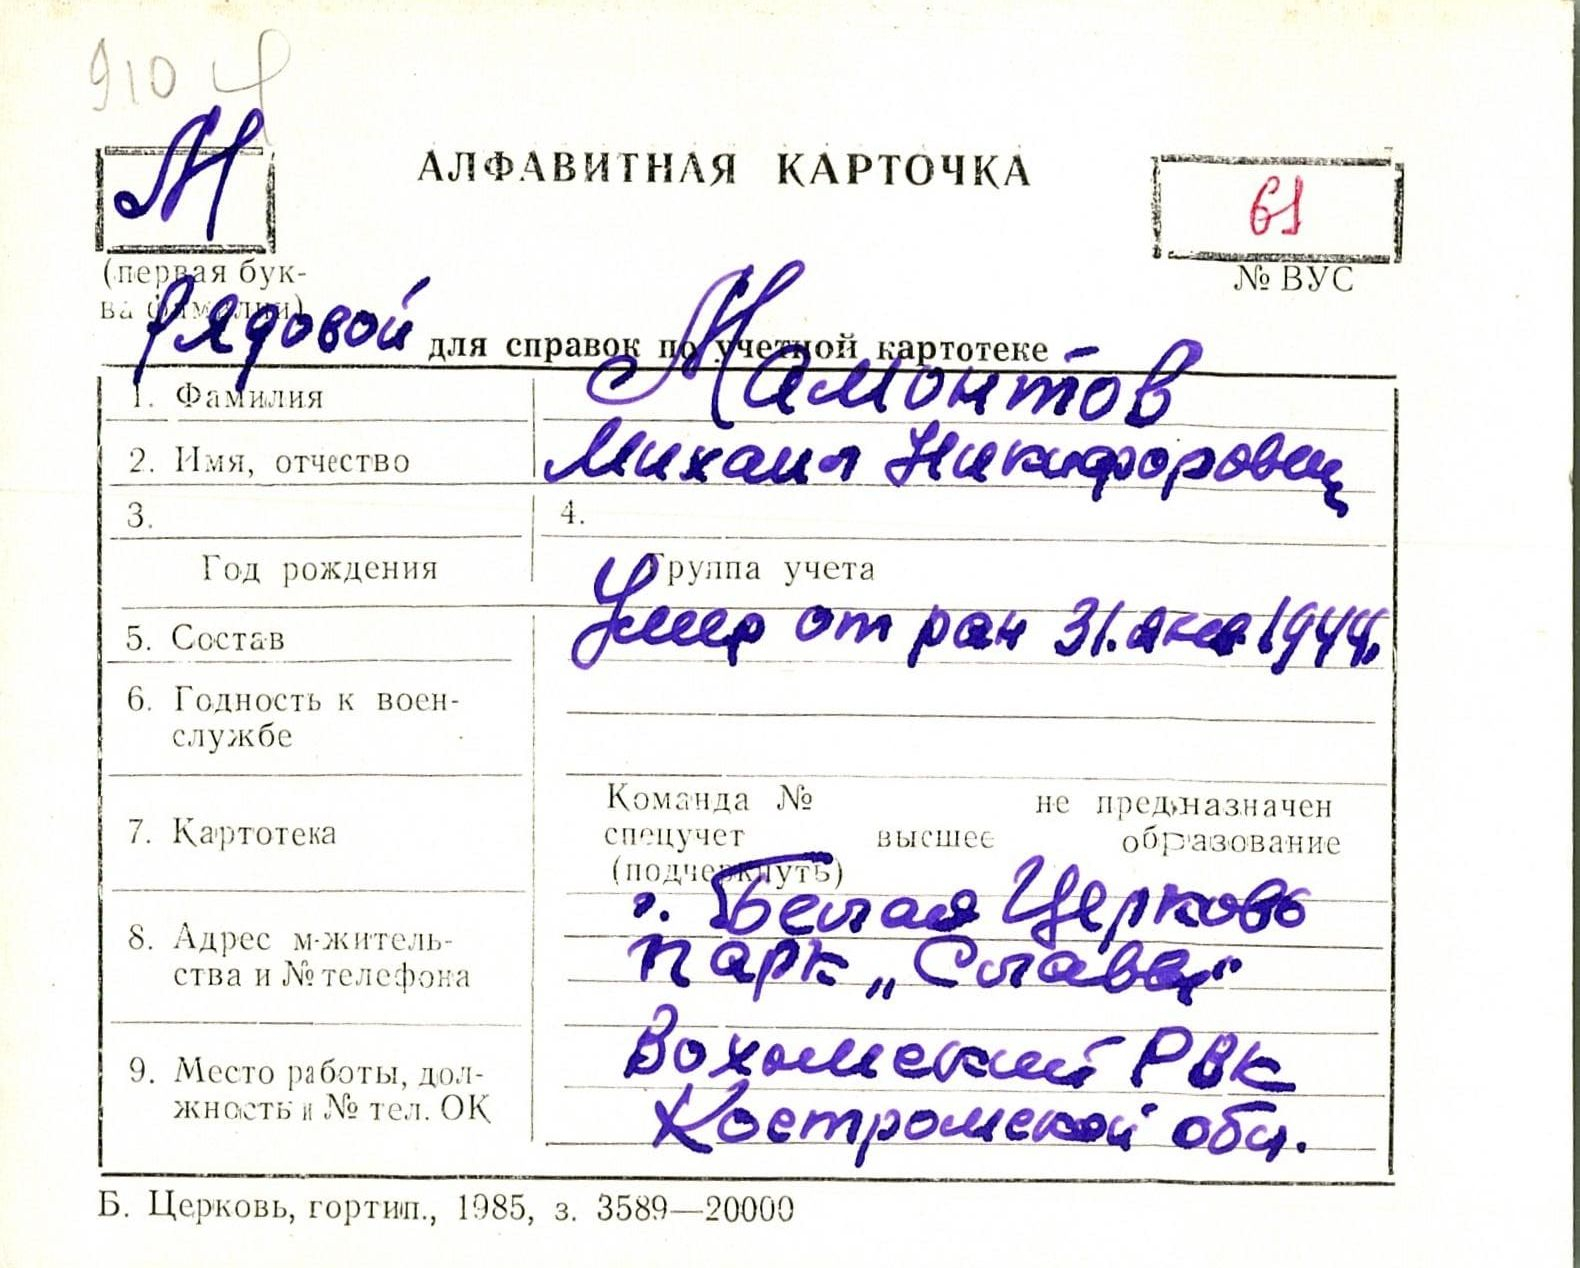 910 Ч
М
АЛФАВИТНАЯ КАРТОЧКА
61
(первая бук-
ва фамилии)
№ ВУС
Рядовой
для справок по учетной картотеке
1. Фамилия
Мамонтов
2. Имя, отчество
Михаил Никифорович
3.
4.
Год рождения
Группа учета
5. Состав
Умер от ран 31. янв. 1944.
6. Годность к воен-
службе
7. Картотека
Команда № не предназначен
спецучет высшее образование
(подчеркнуть)
8. Адрес м-житель-
ства и № телефона
г. Белая Церковь
парк „Славы"
9. Место работы, дол-
жность и № тел. ОК
Вохомский РВК
Костромской обл.
Б. Церковь, гортип., 1985, з. 3589—20000